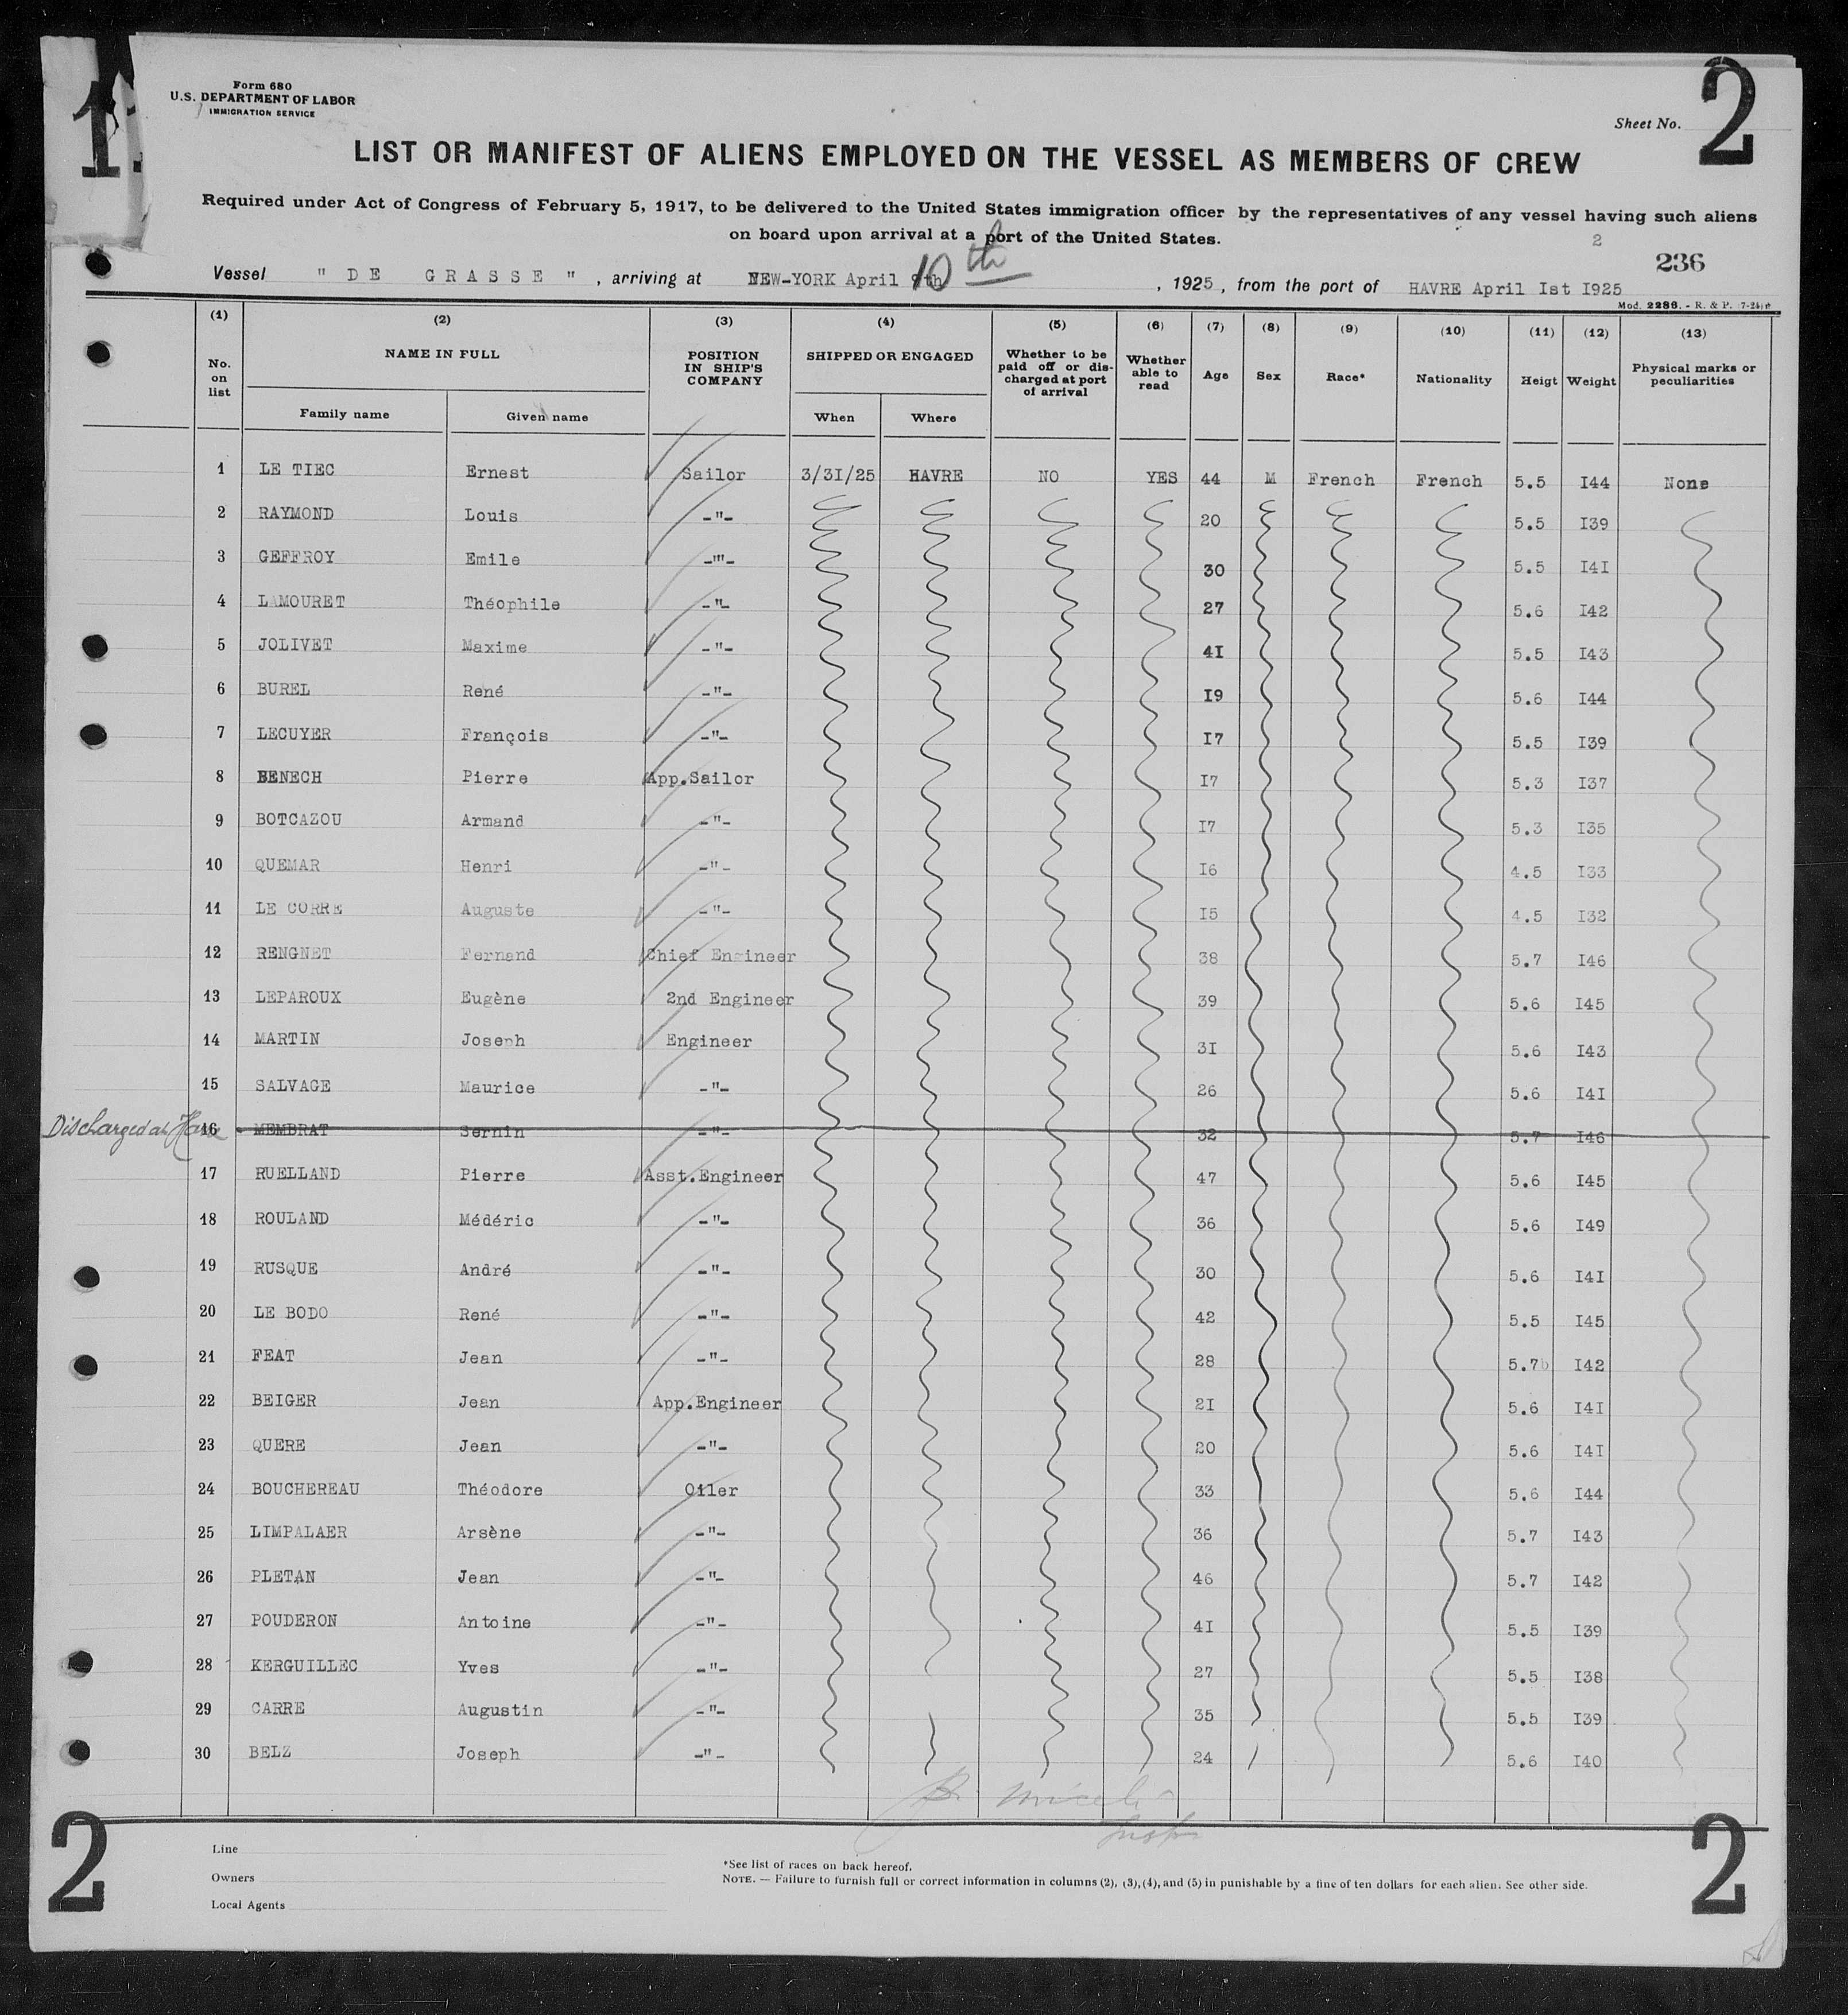 11
2
Form 680
U.S. DEPARTMENT OF LABOR
IMMIGRATION SERVICE
Sheet No.
LIST OR MANIFEST OF ALIENS EMPLOYED ON THE VESSEL AS MEMBERS OF CREW
Required under Act of Congress of February 5, 1917, to be delivered to the United States immigration officer by the representatives of any vessel having such aliens
on board upon arrival at a port of the United States.
2
236
Vessel " DE GRASSE " , arriving at NEW-YORK April 10th , 1925, from the port of HAVRE April Ist I925
Mod. 2286. - R. & P. 7-24
(1) (2) (3) (4) (5) (6) (7) (8) (9) (10) (11) (12) (13)
No. on list NAME IN FULL POSITION IN SHIP'S COMPANY SHIPPED OR ENGAGED Whether to be paid off or discharged at port of arrival Whether able to read Age Sex Race* Nationality Heigt Weight Physical marks or peculiarities
Family name Given name When Where
1 LE TIEC Ernest Sailor 3/3I/25 HAVRE NO YES 44 M French French 5.5 I44 None
2 RAYMOND Louis -"- 20 5.5 I39
3 GEFFROY Emile -"'- 30 5.5 I4I
4 LAMOURET Théophile -"- 27 5.6 I42
5 JOLIVET Maxime -"- 4I 5.5 I43
6 BUREL René -"- I9 5.6 I44
7 LECUYER François -"- I7 5.5 I39
8 BENECH Pierre App.Sailor I7 5.3 I37
9 BOTCAZOU Armand -"- I7 5.3 I35
10 QUEMAR Henri -"- I6 4.5 I33
11 LE CORRE Auguste -"- I5 4.5 I32
12 RENGNET Fernand Chief Engineer 38 5.7 I46
13 LEPAROUX Eugène 2nd Engineer 39 5.6 I45
14 MARTIN Joseph Engineer 3I 5.6 I43
15 SALVAGE Maurice -"- 26 5.6 I4I
Discharged at Havre 16 MEMBRAT Sernin -"- 32 5.7 I46
17 RUELLAND Pierre Asst.Engineer 47 5.6 I45
18 ROULAND Médéric -"- 36 5.6 I49
19 RUSQUE André -"- 30 5.6 I4I
20 LE BODO René -"- 42 5.5 I45
21 FEAT Jean -"- 28 5.7 I42
22 BEIGER Jean App.Engineer 2I 5.6 I4I
23 QUERE Jean -"- 20 5.6 I4I
24 BOUCHEREAU Théodore Oiler 33 5.6 I44
25 LIMPALAER Arsène -"- 36 5.7 I43
26 PLETAN Jean -"- 46 5.7 I42
27 POUDERON Antoine -"- 4I 5.5 I39
28 KERGUILLEC Yves -"- 27 5.5 I38
29 CARRE Augustin -"- 35 5.5 I39
30 BELZ Joseph -"- 24 5.6 I40
2
2
Line
Owners
Local Agents
*See list of races on back hereof.
NOTE. — Failure to furnish full or correct information in columns (2), (3), (4), and (5) in punishable by a fine of ten dollars for each alien. See other side.